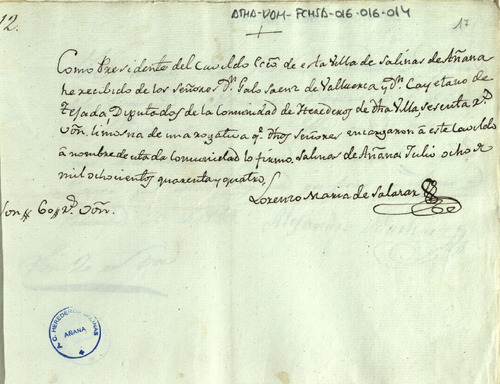 ATHA-DOM-FCHSA-016-016-014
17
12.
Como Presidente del Cavildo Ecco. de esta Villa de Salinas de Añana
he recibido de los Señores Dn. Galo Saenz de Valluerca y Dn. Cayetano de
Tejada, Diputados de la Comunidad de Herederos de dha Villa, sesenta rs.
vón. limosna de una rogativa qe. dhos Señores encargaron a este Cavildo
á nombre de citada comunidad lo firmo. Salinas de Añana Julio ocho de
mil ochocientos quarenta y quatro,
Lorenzo Maria de Salazar
Son # 60 # rs. vón.
C. HEREDEROS SALINAS
AÑANA